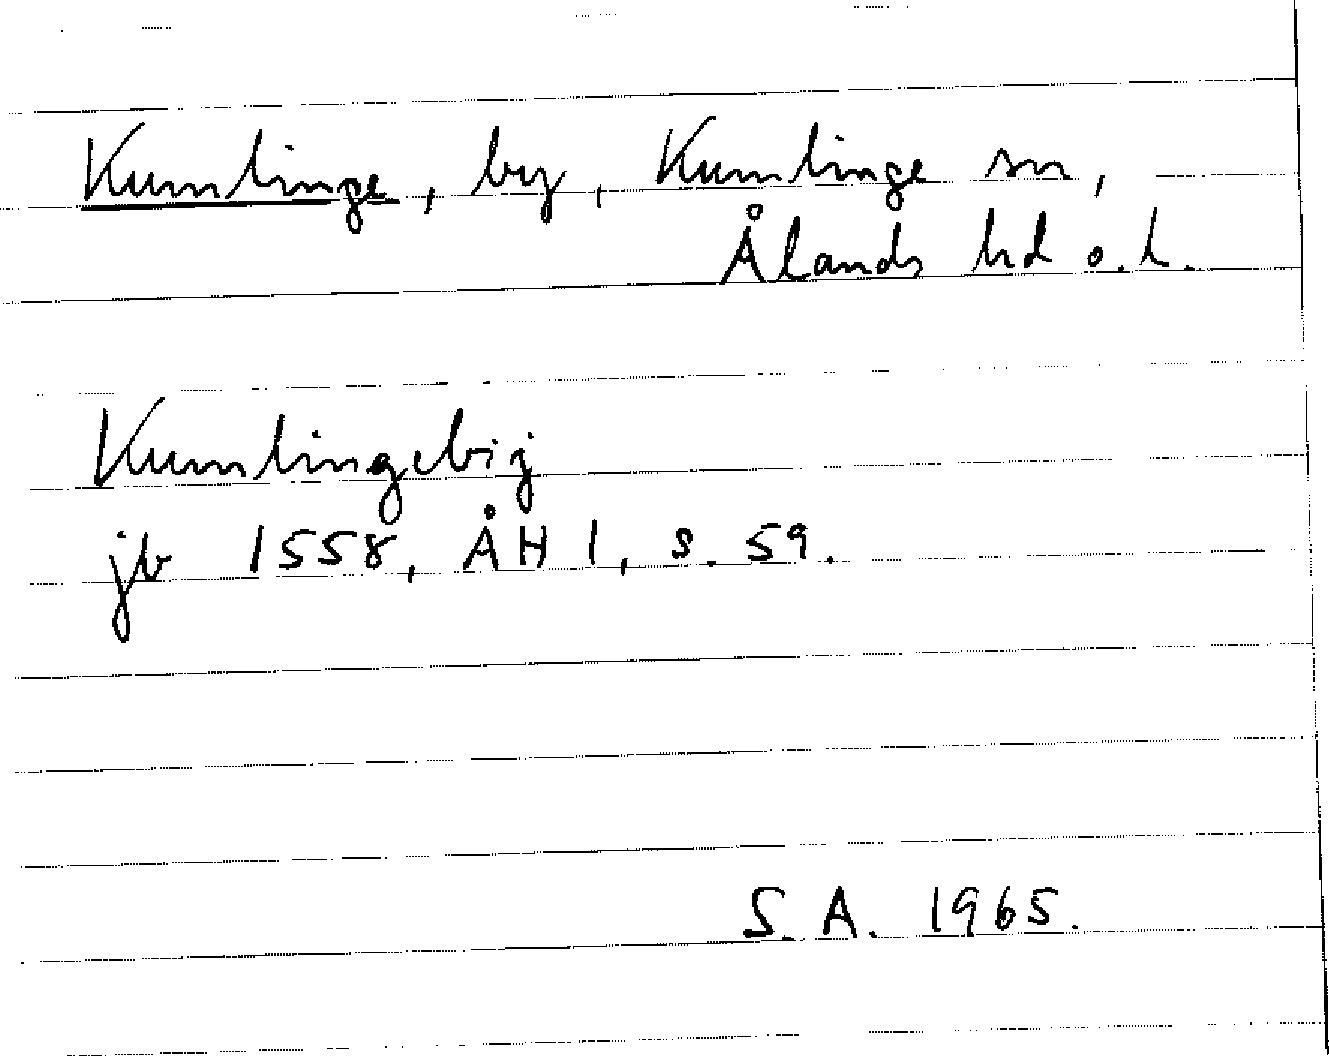 Kumlinge, by, Kumlinge sn,
Ålands hd o. l.
Kumlingebij
jb 1558, ÅH 1, s. 59.
S. A. 1965.